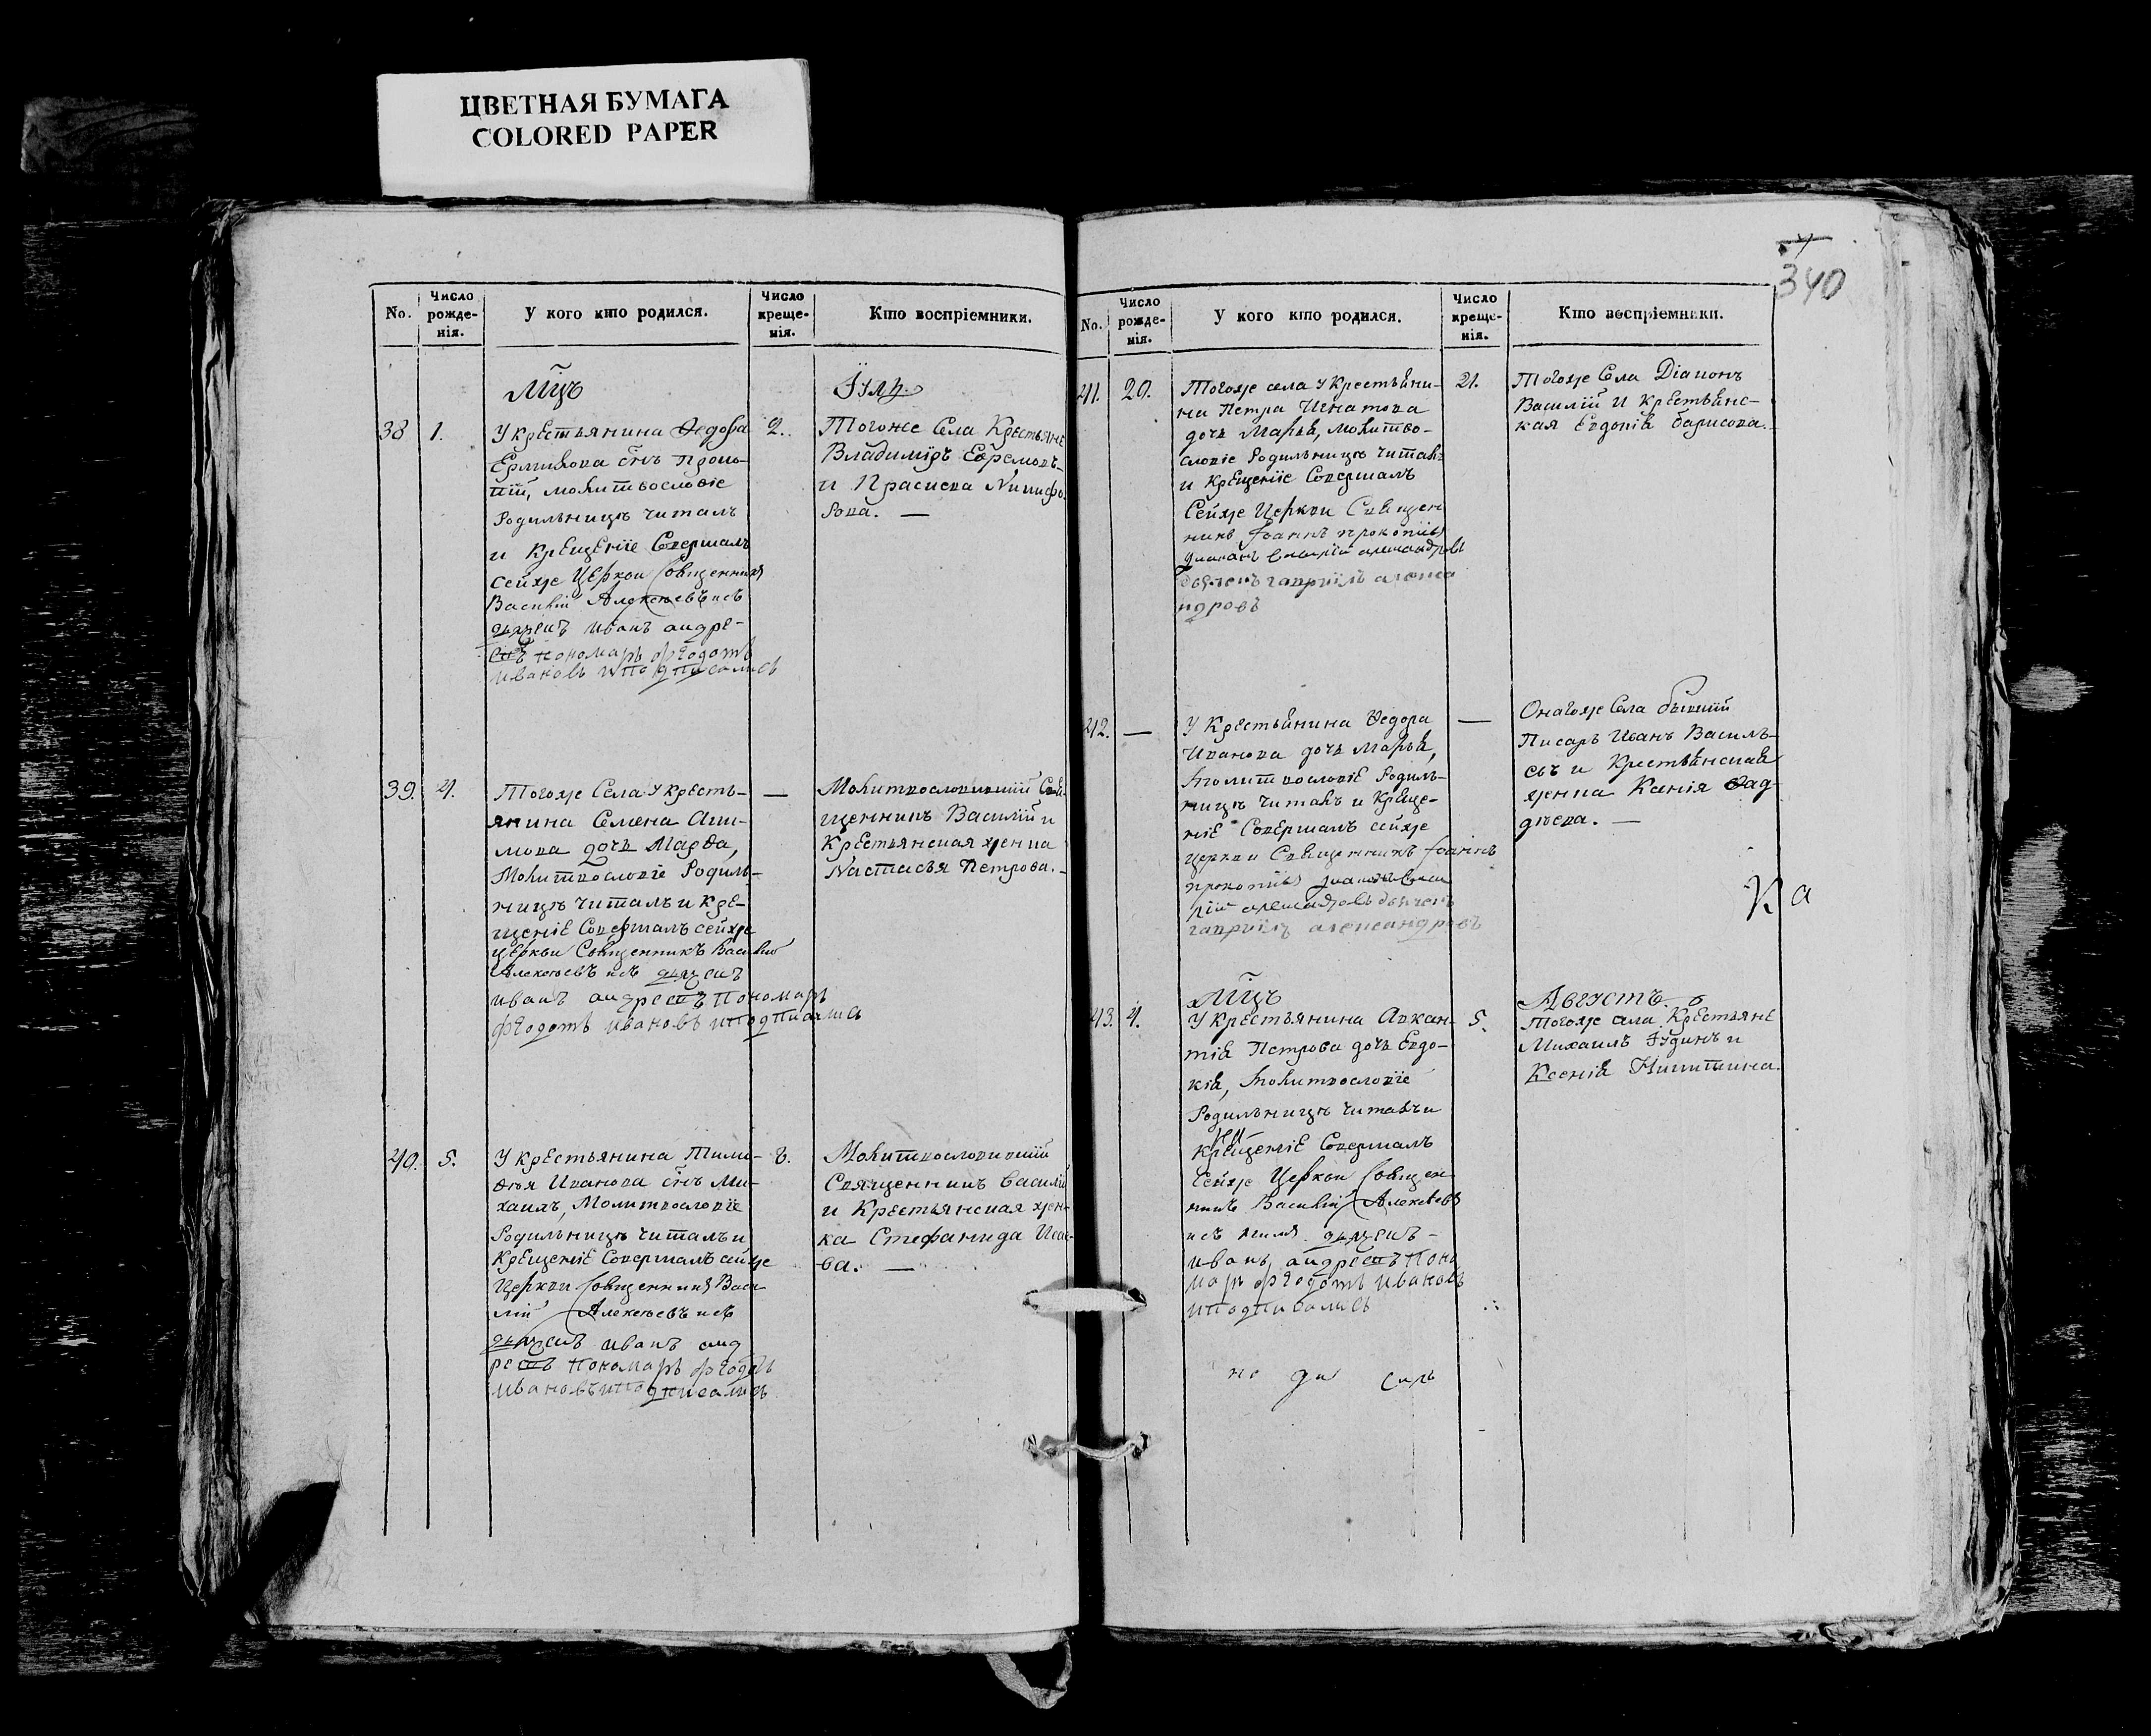 ЦВЕТНАЯ БУМАГА
COLORED PAPER
340
No.
Число рожде-нія.
У кого кто родился.
Число креще-нія.
Кто воспріемники.
Мц̃ъ
Іулъ
38
1.
У крестьянина Ѳедора
Ермилова сн̃ъ Проко-
пій, молитвословіе
Родильницѣ читалъ
и Крещеніе Совершалъ
сейже Церкви Священникъ
Василій Алексѣевъ
дьячекъ иванъ андре-
евъ пономарь ѳѣодотъ
ивановъ иподписались
2.
Тогоже Села Крестьяне
Владиміръ Ефремовъ
и Прасковa Никифо-
рова. —
39.
4.
Тогоже Села У кресть-
янина Семена Аки-
мова дочь Марѳа,
Молитвословіе Родиль-
ницѣ читалъ и Кре-
щеніе Совершалъ сейже
церкви Священникъ Василій
Алексѣевъ дьячекъ
иванъ андреевъ пономарь
ѳѣодотъ ивановъ иподписались
—
Молитвословившій Свя-
щенникъ Василій и
Крестьянская женка
Настасья Петрова.
40.
5.
У крестьянина Тимо-
ѳея Иванова сн̃ъ Ми-
хаилъ, Молитвословіе
Родильницѣ читалъ и
Крещеніе Совершалъ сейже
Церкви Священникъ Васи
лій Алексѣевъ
дьячекъ иванъ анд
реевъ пономарь ѳѣодотъ
ивановъ иподписались
Молитвословившій
Священникъ Василій
и Крестьянская жен-
ка Стефанида Исае-
ва. —
No.
Число рожде-нія.
У кого кто родился.
Число креще-нія.
Кто воспріемники.
41.
20.
Тогоже села у крестьяни-
на Петра Игнатова
дочь Марья, молитво-
словіе Родильницѣ читалъ
и Крещеніе Совершалъ
Сейже Церкви Священ
никъ Іоаннъ прокопіевъ
діаконъ василій александровъ
дьячекъ гавріилъ алекса
ндровъ
21.
Тогоже Села Діаконъ
Василій и Крестьянс-
кая Евдокія Борисова.
42.
—
У Крестьянина Ѳедора
Иванова дочь Марья,
Молитвословіе Родиль-
ницѣ читалъ и Креще-
ніе Совершалъ сейже
церкви Священникъ Іоаннъ
прокопіевъ діаконъ васи
лій александровъ дьячекъ
гавріилъ александровъ
—
Онагоже Села бывшій
Писарь Иванъ Василь-
евъ и Крестьянская
женка Ксенія Ѳад-
дѣева. —
Ка
Мц̃ъ
Августъ.
43.
4.
У крестьянина Аѳкан-
тія Петрова дочь Евдо-
кія, Молитвословіе
Родильницѣ читалъ и
Крещеніе Совершалъ
Сейже Церкви Священ
никъ Василій Алексѣевъ
дьячекъ
иванъ андреевъ поно
марь ѳѣодотъ ивановъ
иподписались
5.
Тогоже села Крестьяне
Михаилъ Іудинъ и
Ксенія Никитина.